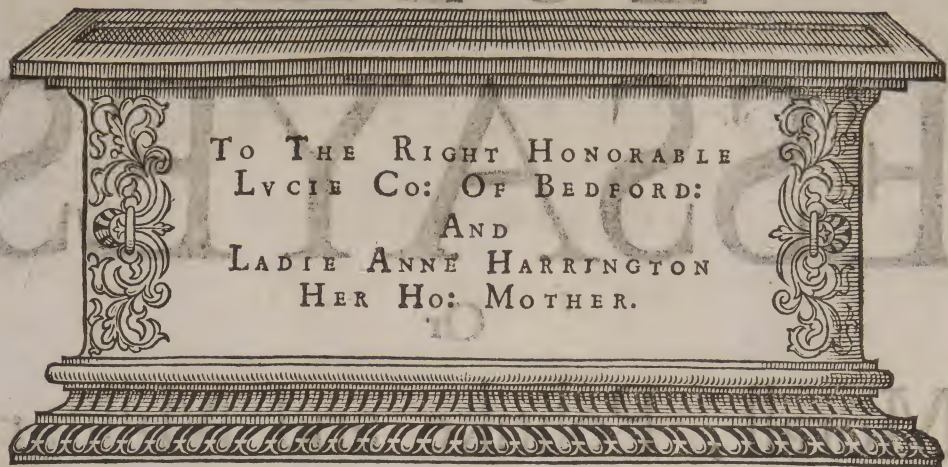 TO THE RIGHT HONORABLE
LVCIE CO: OF BEDFORD:
AND
LADIE ANNE HARRINGTON
HER HO: MOTHER.